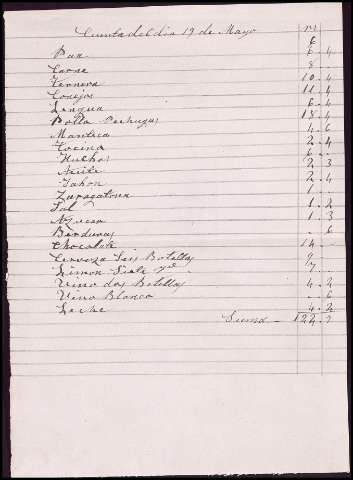 Cuenta del dia 19 de Mayo rs
6
Pan 6 . 4
Carne 8 .
Ternera 10 . 4
Conejos 11 . 4
Lengua 6 . 4
Pollo 13 . 4
Manteca 4 . 6
Tocino 2 . 4
Huebos 6 .
Aceite 2 . 3
Jabon 2 . 4
Zaragatona 1 .
Sal 1 . 2
Azucar 1 . 3
Berduras . 6
Chocolate 14 .
Cerveza Seis Botellas 9
Limon Siete 7
Vino dos Botellas 4 . 2
Vino Blanco . 6
Leche 4 . 2
Suma 122 . 2